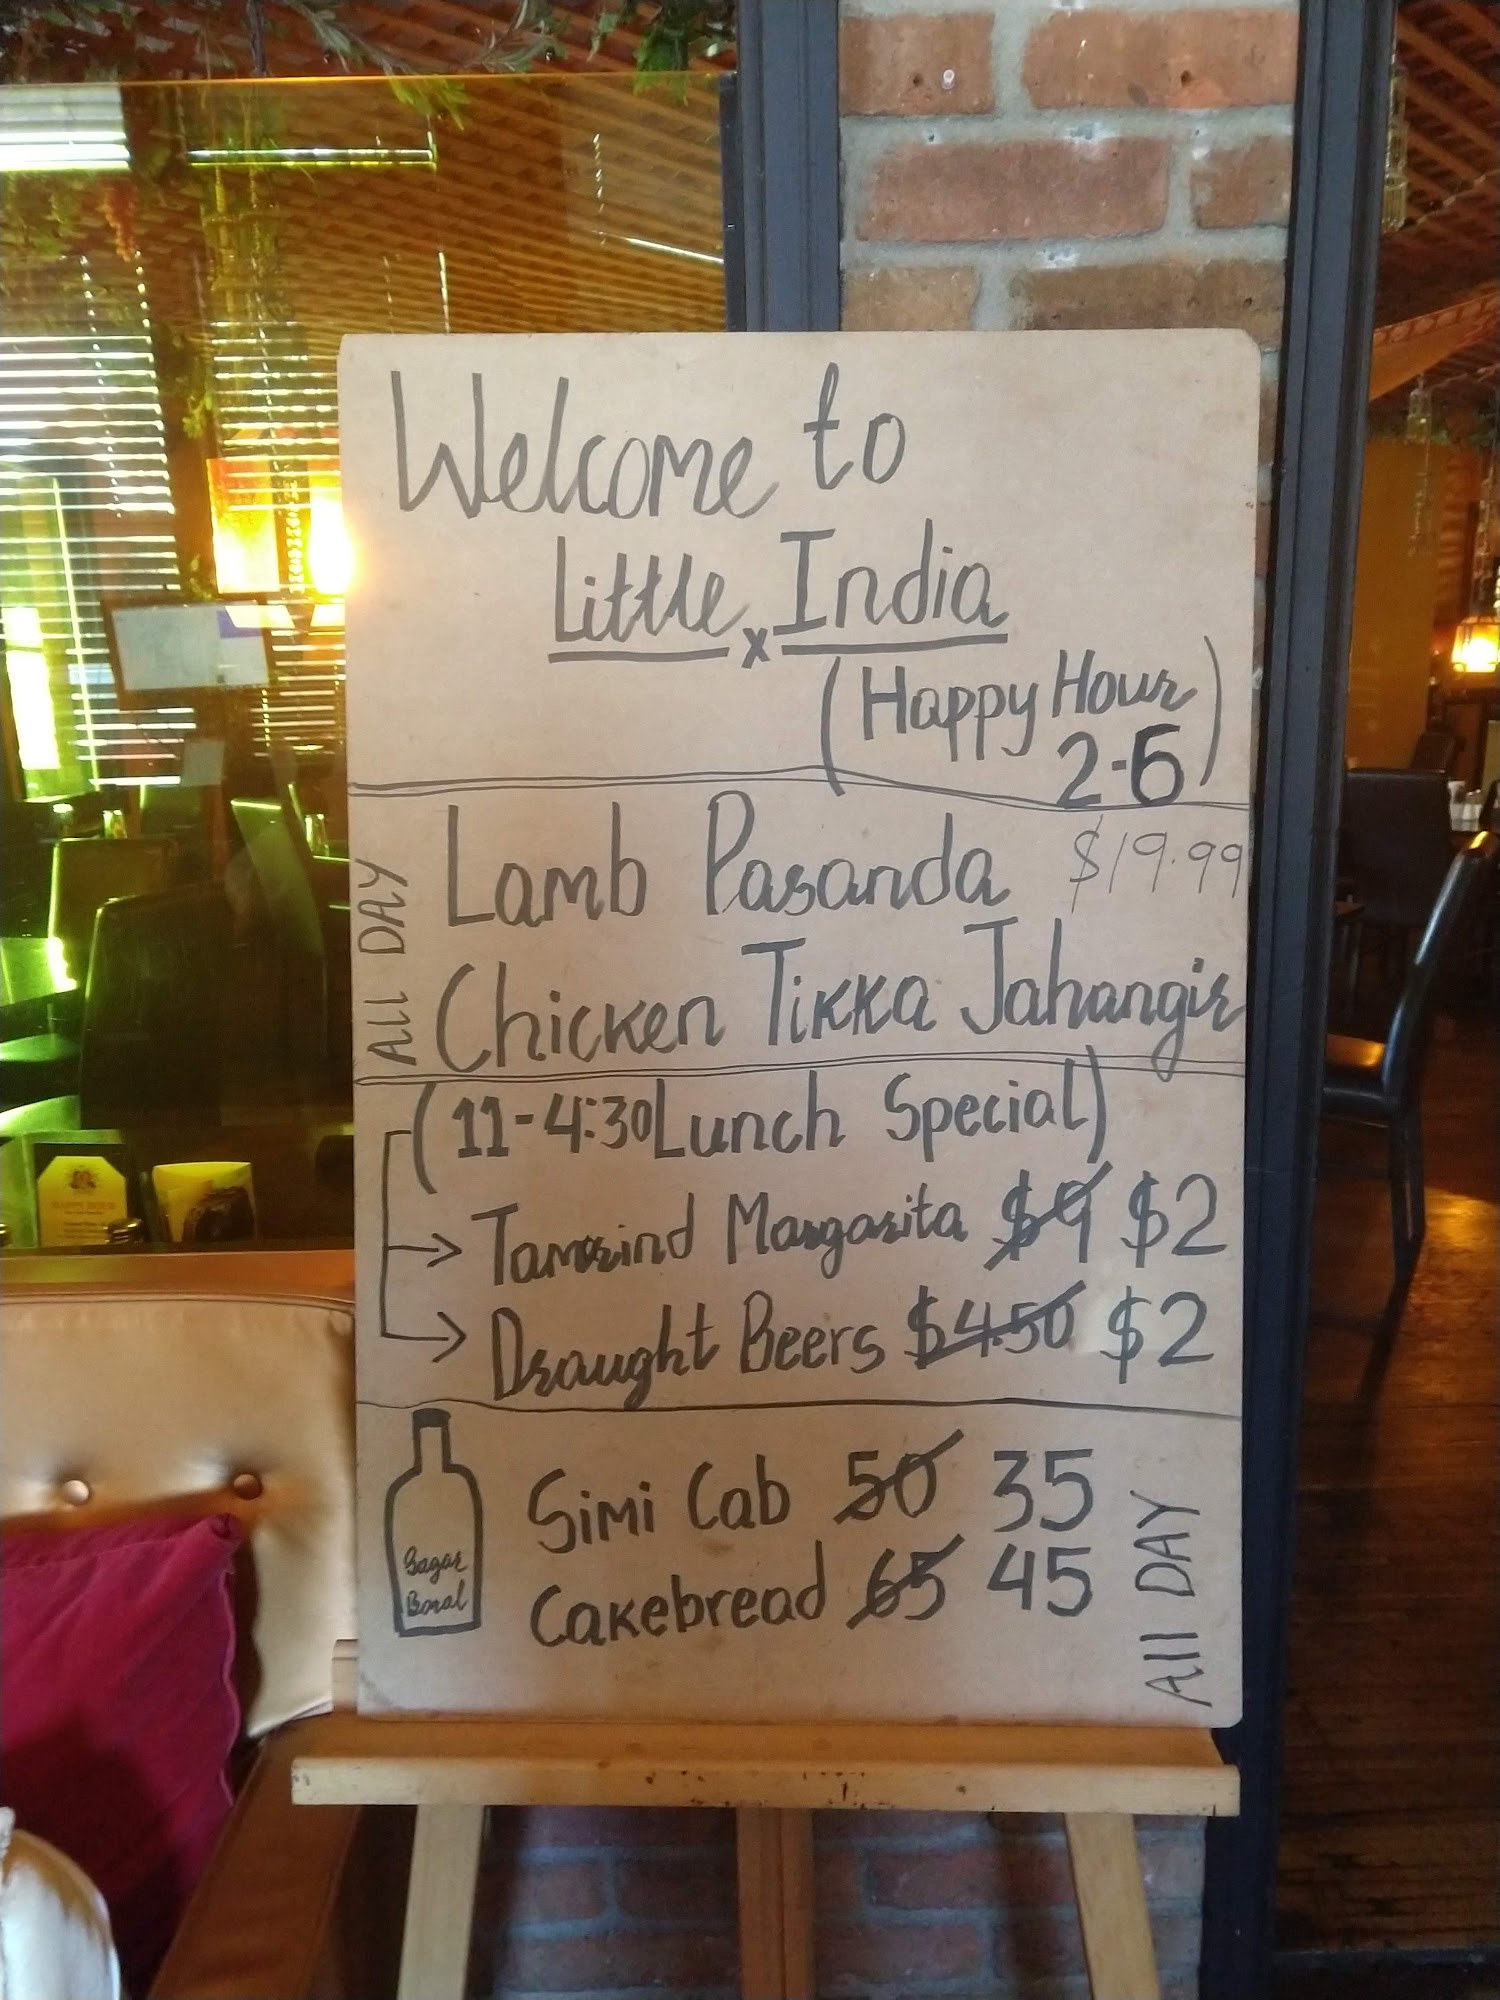 Welcome to
Little x India
(Happy Hour
2-6)
ALL DAY
Lamb Pasanda $19.99
Chicken Tikka Jahangir
(11-4:30 Lunch Special)
Tamarind Margarita $9 $2
Draught Beers $4.50 $2
Simi Cab 50 35
Cakebread 65 45
All DAY
HAPPY HOUR